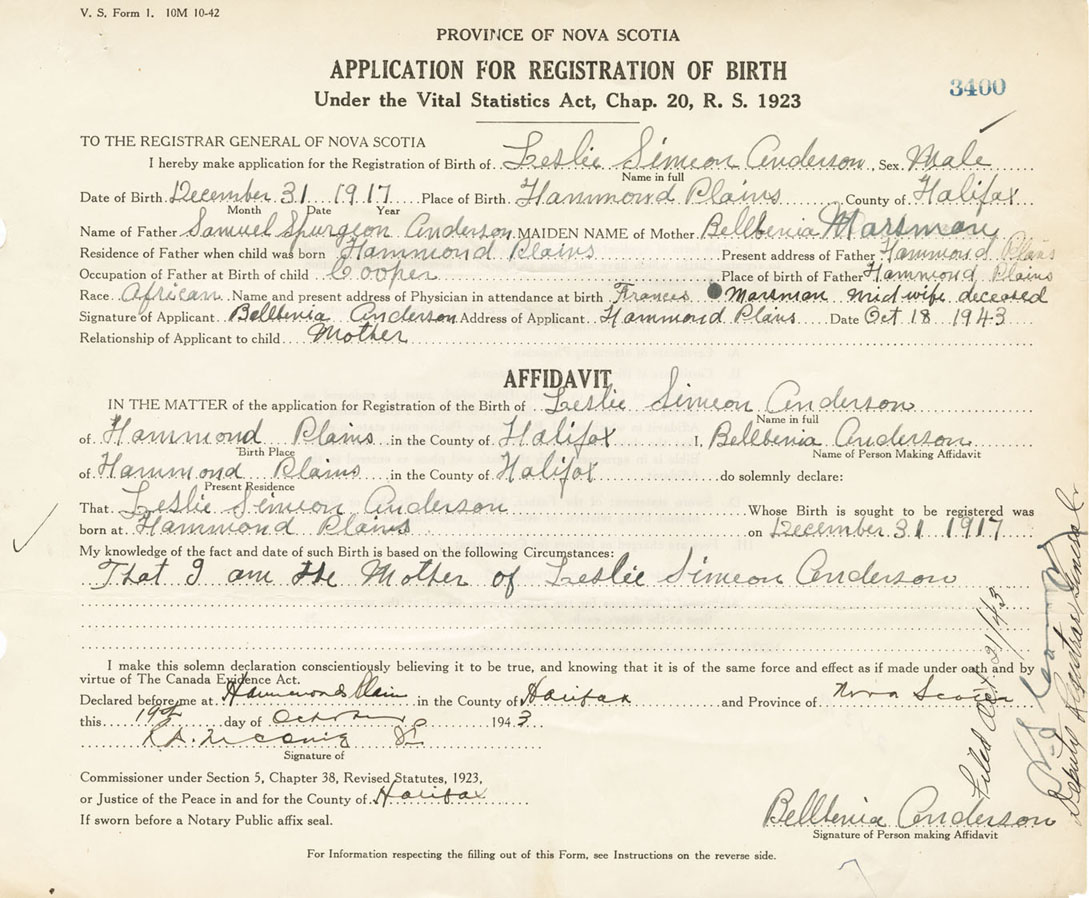 V. S. Form 1. 10M 10-42
PROVINCE OF NOVA SCOTIA
APPLICATION FOR REGISTRATION OF BIRTH
3400
Under the Vital Statistics Act, Chap. 20, R. S. 1923
TO THE REGISTRAR GENERAL OF NOVA SCOTIA
I hereby make application for the Registration of Birth of Leslie Simeon Anderson, Sex Male
Name in full
Date of Birth December 31 1917 Place of Birth Hammond Plains County of Halifax
Month Date Year
Name of Father Samuel Spurgeon Anderson MAIDEN NAME of Mother Bellbenia Marsman
Residence of Father when child was born Hammond Plains Present address of Father Hammond Plains
Occupation of Father at Birth of child Cooper Place of birth of Father Hammond Plains
Race African Name and present address of Physician in attendance at birth Frances Marsman midwife deceased
Signature of Applicant Bellbenia Anderson Address of Applicant Hammond Plains Date Oct 18 1943
Relationship of Applicant to child Mother
AFFIDAVIT
IN THE MATTER of the application for Registration of the Birth of Leslie Simeon Anderson
Name in full
of Hammond Plains in the County of Halifax I, Bellbenia Anderson
Birth Place Name of Person Making Affidavit
of Hammond Plains in the County of Halifax do solemnly declare:
Present Residence
That Leslie Simeon Anderson Whose Birth is sought to be registered was
born at Hammond Plains on December 31 1917
My knowledge of the fact and date of such Birth is based on the following Circumstances:
That I am the Mother of Leslie Simeon Anderson
I make this solemn declaration conscientiously believing it to be true, and knowing that it is of the same force and effect as if made under oath and by
virtue of The Canada Evidence Act.
Declared before me at Hammonds Plain in the County of Halifax and Province of Nova Scotia
this 19th day of October 1943
Signature of
Commissioner under Section 5, Chapter 38, Revised Statutes, 1923,
or Justice of the Peace in and for the County of Halifax
If sworn before a Notary Public affix seal.
Bellbenia Anderson
Signature of Person making Affidavit
For Information respecting the filling out of this Form, see Instructions on the reverse side.
Filed Oct 21/43
Deputy Registrar General